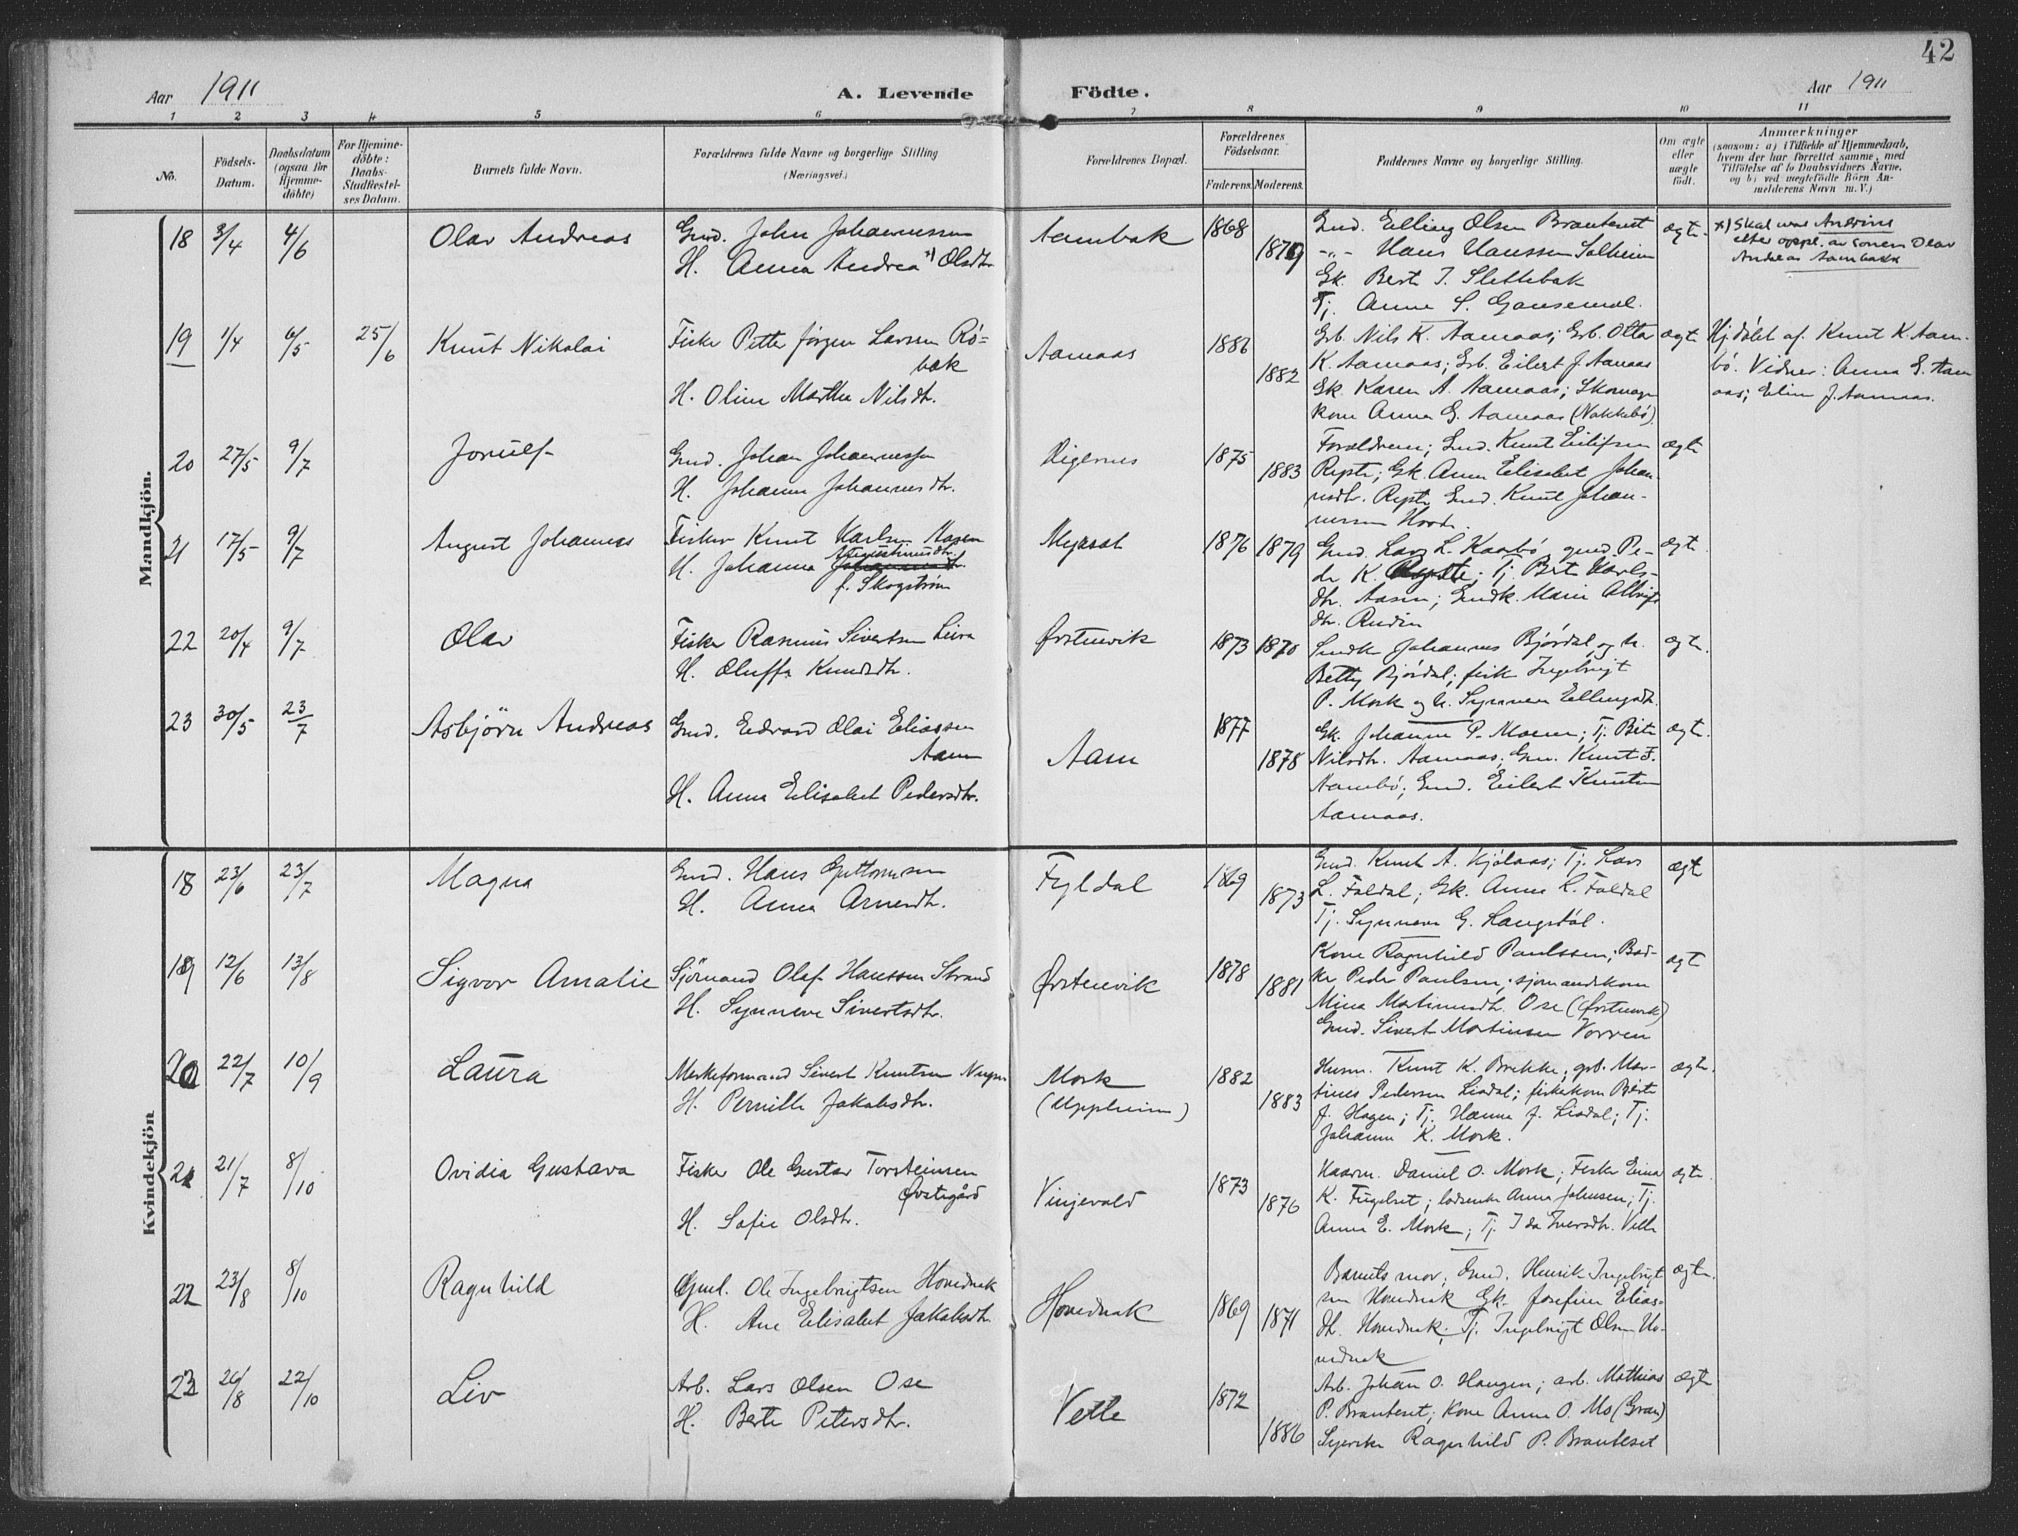 42
Aar 1911
A. Levende
Födte.
Aar 1911
1 2 3 4 5 6 7 8 9 10 11
No.
Födsels-
Datum.
Daabsdatum
(ogsaa för
Hjemme-
döbte)
For Hjemme-
döbte:
Daabs-
Stadfæstel-
ses Datum.
Barnets fulde Navn.
Forældrenes fulde Navne og borgerlige Stilling
(Næringsvei.)
Forældrenes Bopæl.
Forældrenes
Födselsaar.
Faderens. Moderens.
Faddernes Navne og borgerlige Stilling.
Om ægte
eller
uægte
födt.
Anmærkninger
(saasom: a) i Tilfælde af Hjemmedaab,
hvem der har forrettet samme, med
Tilföielse af to Daabsvidners Navne,
og b) ved uægtefödte Börn An-
melderens Navn m. V.)
Mandkjön.
18 3/4 4/6 Olav Andreas
Gmd. John Johannessen
H. Anna Andrea x) Olsdtr.
Aambak 1868 1879
Gmd. Elling Olsen Brauteset
-"- Hans Hanssen Solheim
Gk. Berte J. Slettebak
Tj. Anne S. Gausemel.
ægte
x) Skal være Andrine
etter oppl. av sønen Olav
Andreas Aambakk
19 1/4 6/5 25/6 Knut Nikolai
Fisker Petter Jørgen Larssen Rø-
bak
H. Oline Marthe Nilsdtr.
Aamaas 1886 1882
Grb. Nils K. Aamaas; Grb. Otto
K. Aamaas; Grb. Eilert J. Aamaas
Gk. Karen A. Aamaas; Skomager-
kone Anna G. Aamaas (Nakkebø)
ægte
Hj.døbt af Knut K. Aam-
bø. Vidner: Anna G. Aam
aas; Eline J. Aamaas.
20 27/5 9/7 Jorulf
Gmd. Johan Johannessen
H. Johanne Johannesdtr.
Digernes 1875 1883
Forældrene; Gmd. Knut Eilifsen
Repste; Gk. Anne Elisabet Johan-
nesdtr. Repste, Gmd. Knut Johan-
nessen Hovde.
ægte
21 17/5 9/7 August Johannes
Fisker Knut Karlsen Aasen
H. Johanna Augustinusdtr.
f. Skogstrøm
Myrset 1876 1879
Gmd. Lars L. Kaarbø, gmd. Pe-
der K. Repste; Tj. Berte Karls-
dtr. Aasen; Gmdk. Marie
dtr.
ægte
22 20/4 9/7 Olav
Fisker Rasmus Sivertsen Leira
H. Oluffa Knudsdtr.
Ørstenvik 1873 1870
Gmdk Johannes Bjørdal og h.
Betty Bjørdal; fisk Ingebrigt
P. Mork og h. Synneva Ellingsdtr.
ægte.
23 30/5 23/7 Asbjörn Andreas
Gmd. Edvard Olai Eliassen
Aam
H. Anna Elisabet Pedersdtr.
Aam 1877 1878
Gk. Johanne P. Moen; Tj. Berte
Nilsdtr. Aamaas; Gm. Knut F.
Aambø; Gmd. Eilert Knutsen
Aamaas.
ægte.
Kvindekjön
18 23/6 23/7 Magna
Gmd. Hans Guttormsen
H. Anna Arnesdtr.
Fyldal 1869 1873
Gmd. Knut A. Kjølaas; Tj. Lars
L. Foldal; Gk. Anne K. Foldal
Tj. Synneva G. Langstöl.
ægte
19 12/6 13/8 Sigvor Amalie
Sjömand Olaf Hanssen Strand
H. Synneve Sivertsdtr.
Ørstenvik 1878 1881
Kone Ragnhild Paulssen; Bad-
ke Peder Paulsen; sjømandskone
Mina Martinusdtr. Ose (Ørstenvik)
Gmd. Sivert Martinsen Vorren
ægte
20 22/7 10/9 Laura
Sivert Knutsen
H. Pernille Jakobsdtr.
Mork
(Uppheim) 1882 1883
Husm. Knut K. Brekke; grb. Mar-
tines Pedersen Liadal; fiskekone Berte
J. Hagen; Tj. Hanna J. Liadal; Tj.
Johanne K. Mork.
ægte.
21 21/7 8/10 Ovidia Gustava
Fisker Ole Gustav Torsteinsen
Øvstegård
H. Sofie Olsdtr.
Vinjevold 1873 1876
Kaarm. Daniel O. Mork; Fisker Einar
K. Fugelset; lodsenke Anna Johnsen; Tj.
Anna E. Mork; Tj. Ida Iversdtr. Velle
ægte.
22 23/8 8/10 Ragnhild
Gmd. Ole Ingebrigtsen Hovdenak
H. Ane Elisabet Jakobsdtr.
Hovdenak 1869 1871
Barnets mor; Gmd. Henrik Ingebrigt
sen Hovdenak Gk. Josefine Elias-
dtr. Hovdenak; Tj. Ingebrigt Olsen Ho-
vdenak
ægte.
23 26/8 22/10 Liv
Arb. Lars Olsen Ose
H. Berte Petersdtr.
Velle 1872 1886
Arb. Johan O. Haugen; arb. Mathias
P. Brauteset; Kone Anne O. Mo (Gran)
Syerske Ragnhild P. Brauteset
ægte